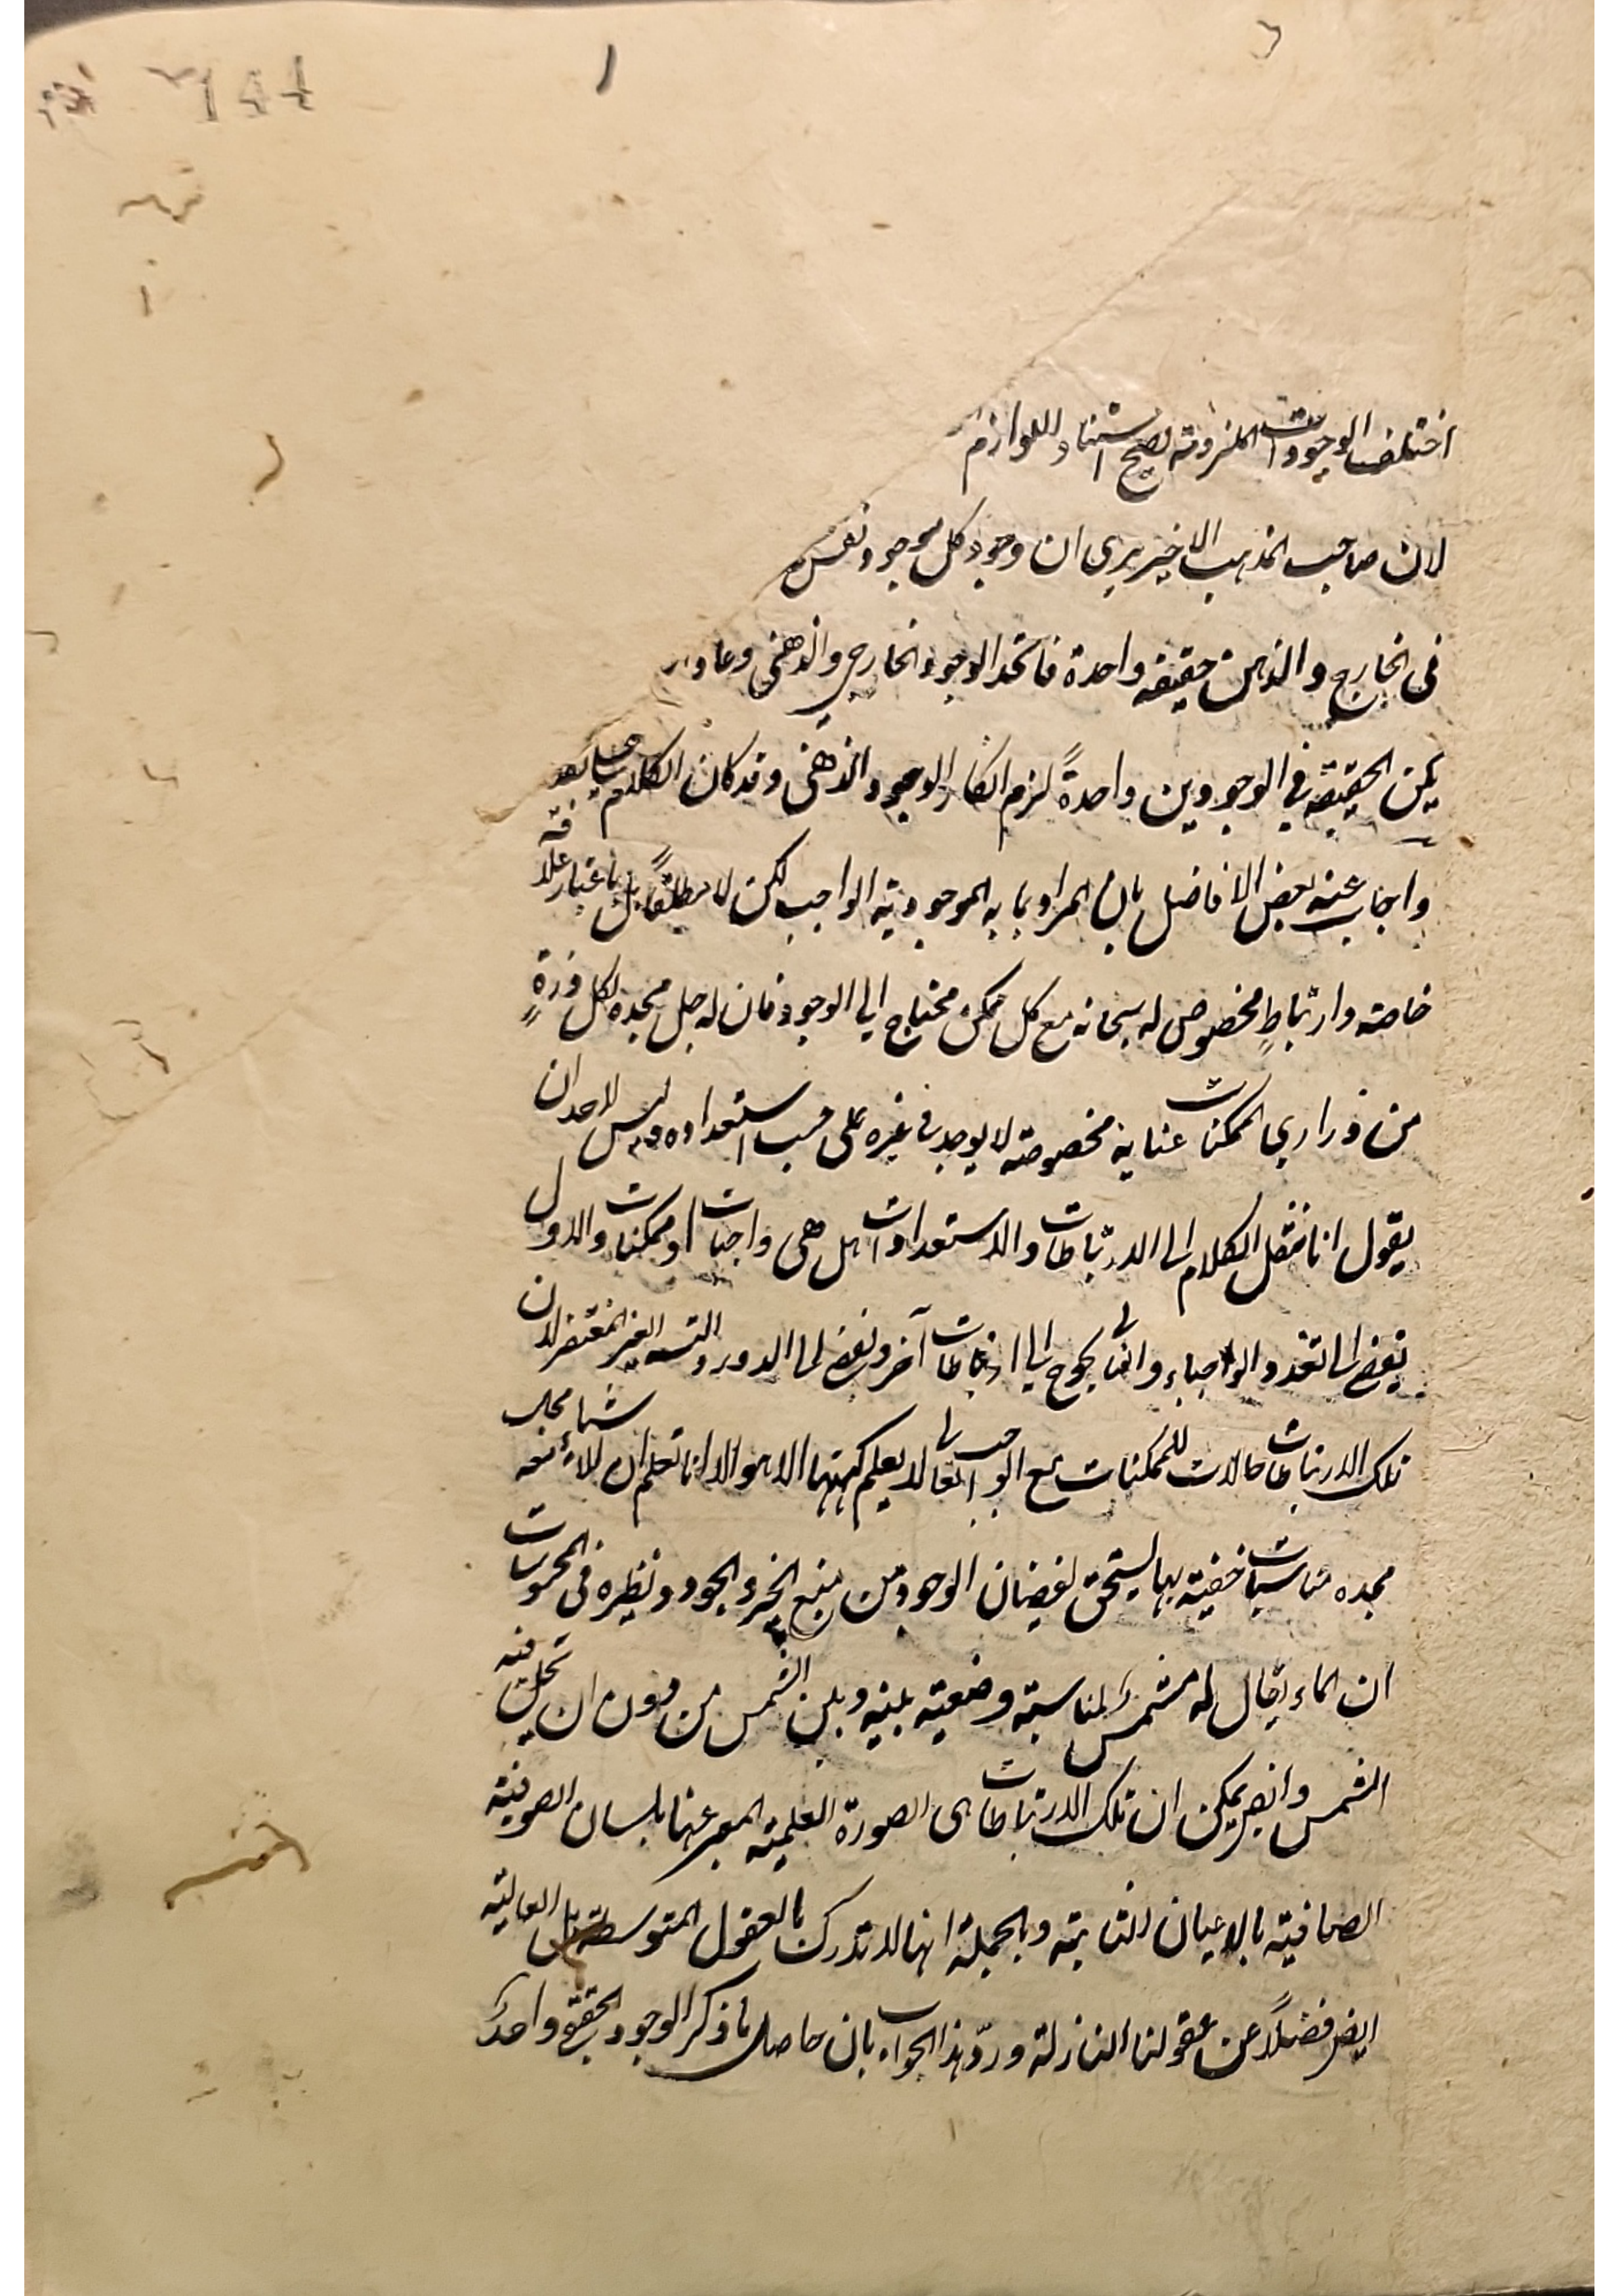 اختلف الوجودات الملزومة يصح استناد اللوازم
لان صاحب المذهب الاخير يرى ان وجود كل موجود نفس
فى الخارج والذهن حقيقة واحدة فاتحد الوجود الخارجي والذهنى وعاد
يكن الحقيقة في الوجودين واحدةً لزم انكار الوجود الذهنى وقد كان الكلام على تقد
واجاب عنه بعض الافاضل بان المراد بما به الموجودية الواجب لكن لا مطلقاً بل باعتبار علاقة
خاصة وارتباطٍ مخصوص له سبحانه مع كل ممكن محتاج الى الوجود فان له جل مجده لكل ذرةٍ
من ذراري الممكنات عناية مخصوصة لا يوجد فى غيره على حسب استعداده وليس لاحد ان
يقول انا ننقل الكلام الى الارتباطات والاستعدادات هل هى واجبات او ممكنات والاول
يفضى الى تعدد الواجباء والثانى يحوج الى ارتباطات آخر ويفضى الى الدور والتسـ الغير المتقضى لان
تلك الارتباطات حالات للممكنات مع الواجب تعالى لا يعلم كنهها الا هو الا انا نعلم ان للاشياء معه
مجده مناسبات خفية بها يستحق لفيضان الوجود من منبع الخير والجود ونظيره فى المحسوسات
ان الماء يقال له مشمس لمناسبة وضعية بينه وبين الشمس من دون ان تحل فيه
الشمس وايضا يمكن ان تلك الارتباطات هى الصورة العلمية المعبر عنها بلسان الصوفية
الصافية بالاعيان الثابتة وبالجملة انها لا تدرك بالعقول المتوسطة بل العالية
ايضـ فضلاً عن عقولنا النازلة وردّ هذا الجواب بان حاصل ما ذكر الوجود الحقيقى واحدٌ